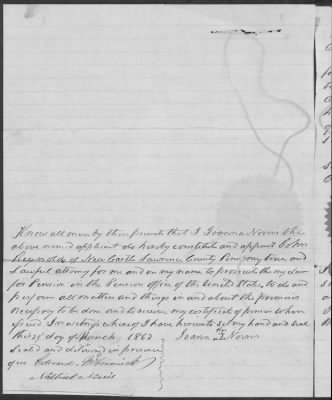 Know all men by these presents that I Joanna Norris the
above named applicant do hereby constitute and appoint John
Reynolds of New Castle Lawrence County Penn my true and
Lawful attorney for me and in my name to prosecute the my claim
for Pension in the Pension office of the United States, to do and
perform all matters and things in and about the premises
necessary to be done and to receive my certificate of pension when
issued In witness whereof I have hereunto set my hand and seal
this day of March 1863 Joann Norris
Sealed and delivered in presence
of us Edward